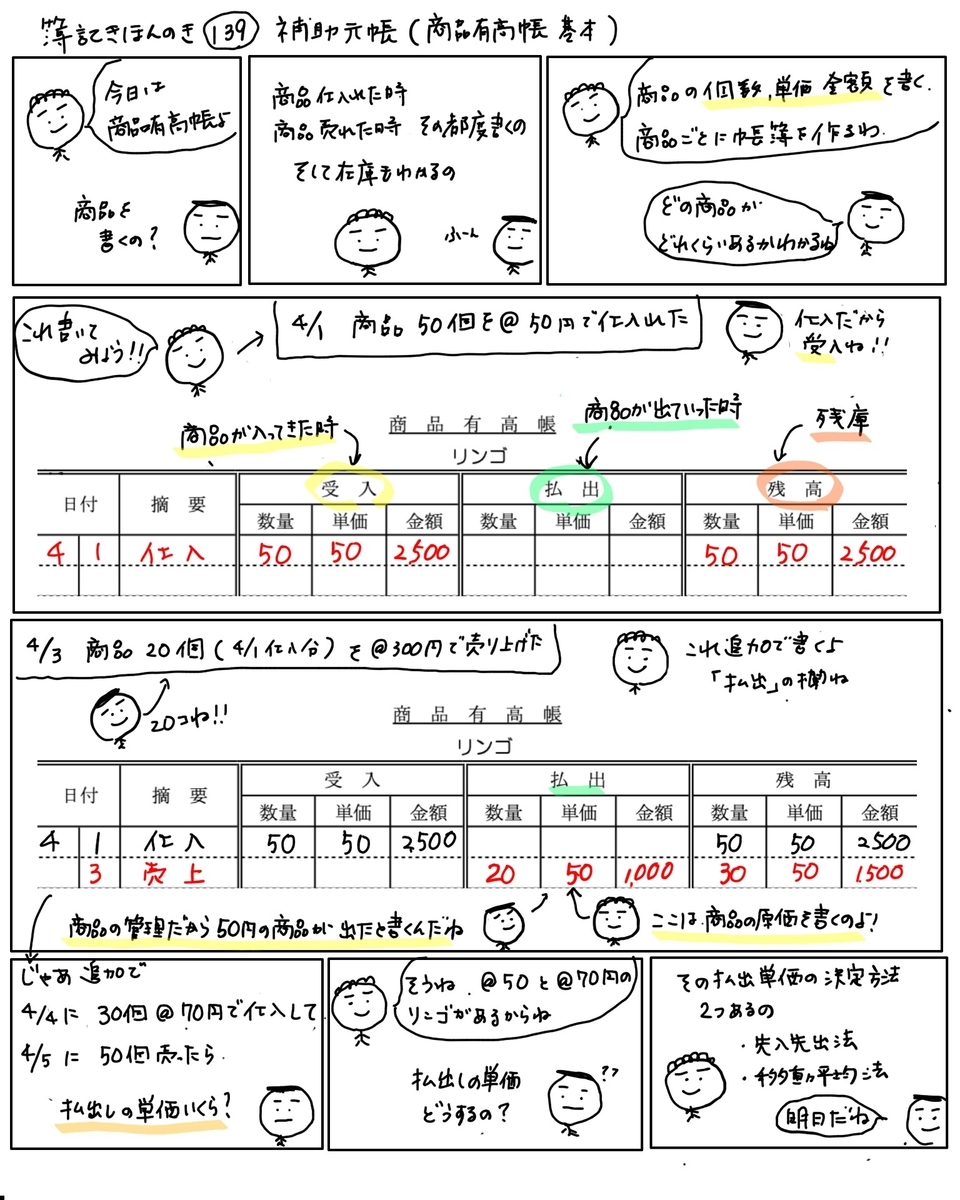 簿記きほんのき 139 補助元帳(商品有高帳 基本)
今日は
商品有高帳よ
商品を
書くの?
商品仕入れた時
商品売れた時 その都度書くの
そして在庫もわかるの
ふーん
商品の個数,単価 金額を書く.
商品ごとに帳簿を作るわ.
どの商品が
どれくらいあるかわかるね
これ書いて
みよう!!
4/1 商品 50個を@50円で仕入れた
仕入だから
受入ね!!
商品が入ってきた時
商品が出ていった時
残庫
商品有高帳
リンゴ
日付 摘要 受入 払出 残高
数量 単価 金額 数量 単価 金額 数量 単価 金額
4 1 仕入 50 50 2500 50 50 2500
4/3 商品 20個(4/1仕入分)を@300円で売り上げた
これ追加で書くよ
「払出」の欄ね
20コね!!
商品有高帳
リンゴ
日付 摘要 受入 払出 残高
数量 単価 金額 数量 単価 金額 数量 単価 金額
4 1 仕入 50 50 2,500 50 50 2500
3 売上 20 50 1,000 30 50 1,500
商品の管理だから50円の商品が出たと書くんだね
ここは商品の原価を書くのよ!
じゃあ追加で
4/4に 30個@70円で仕入して
4/5に 50個売ったら
払出しの単価いくら?
そうね @50と@70円の
リンゴがあるからね
払出しの単価
どうするの?
??
その払出単価の決定方法
2つあるの
・先入先出法
・移動平均法
明日だね